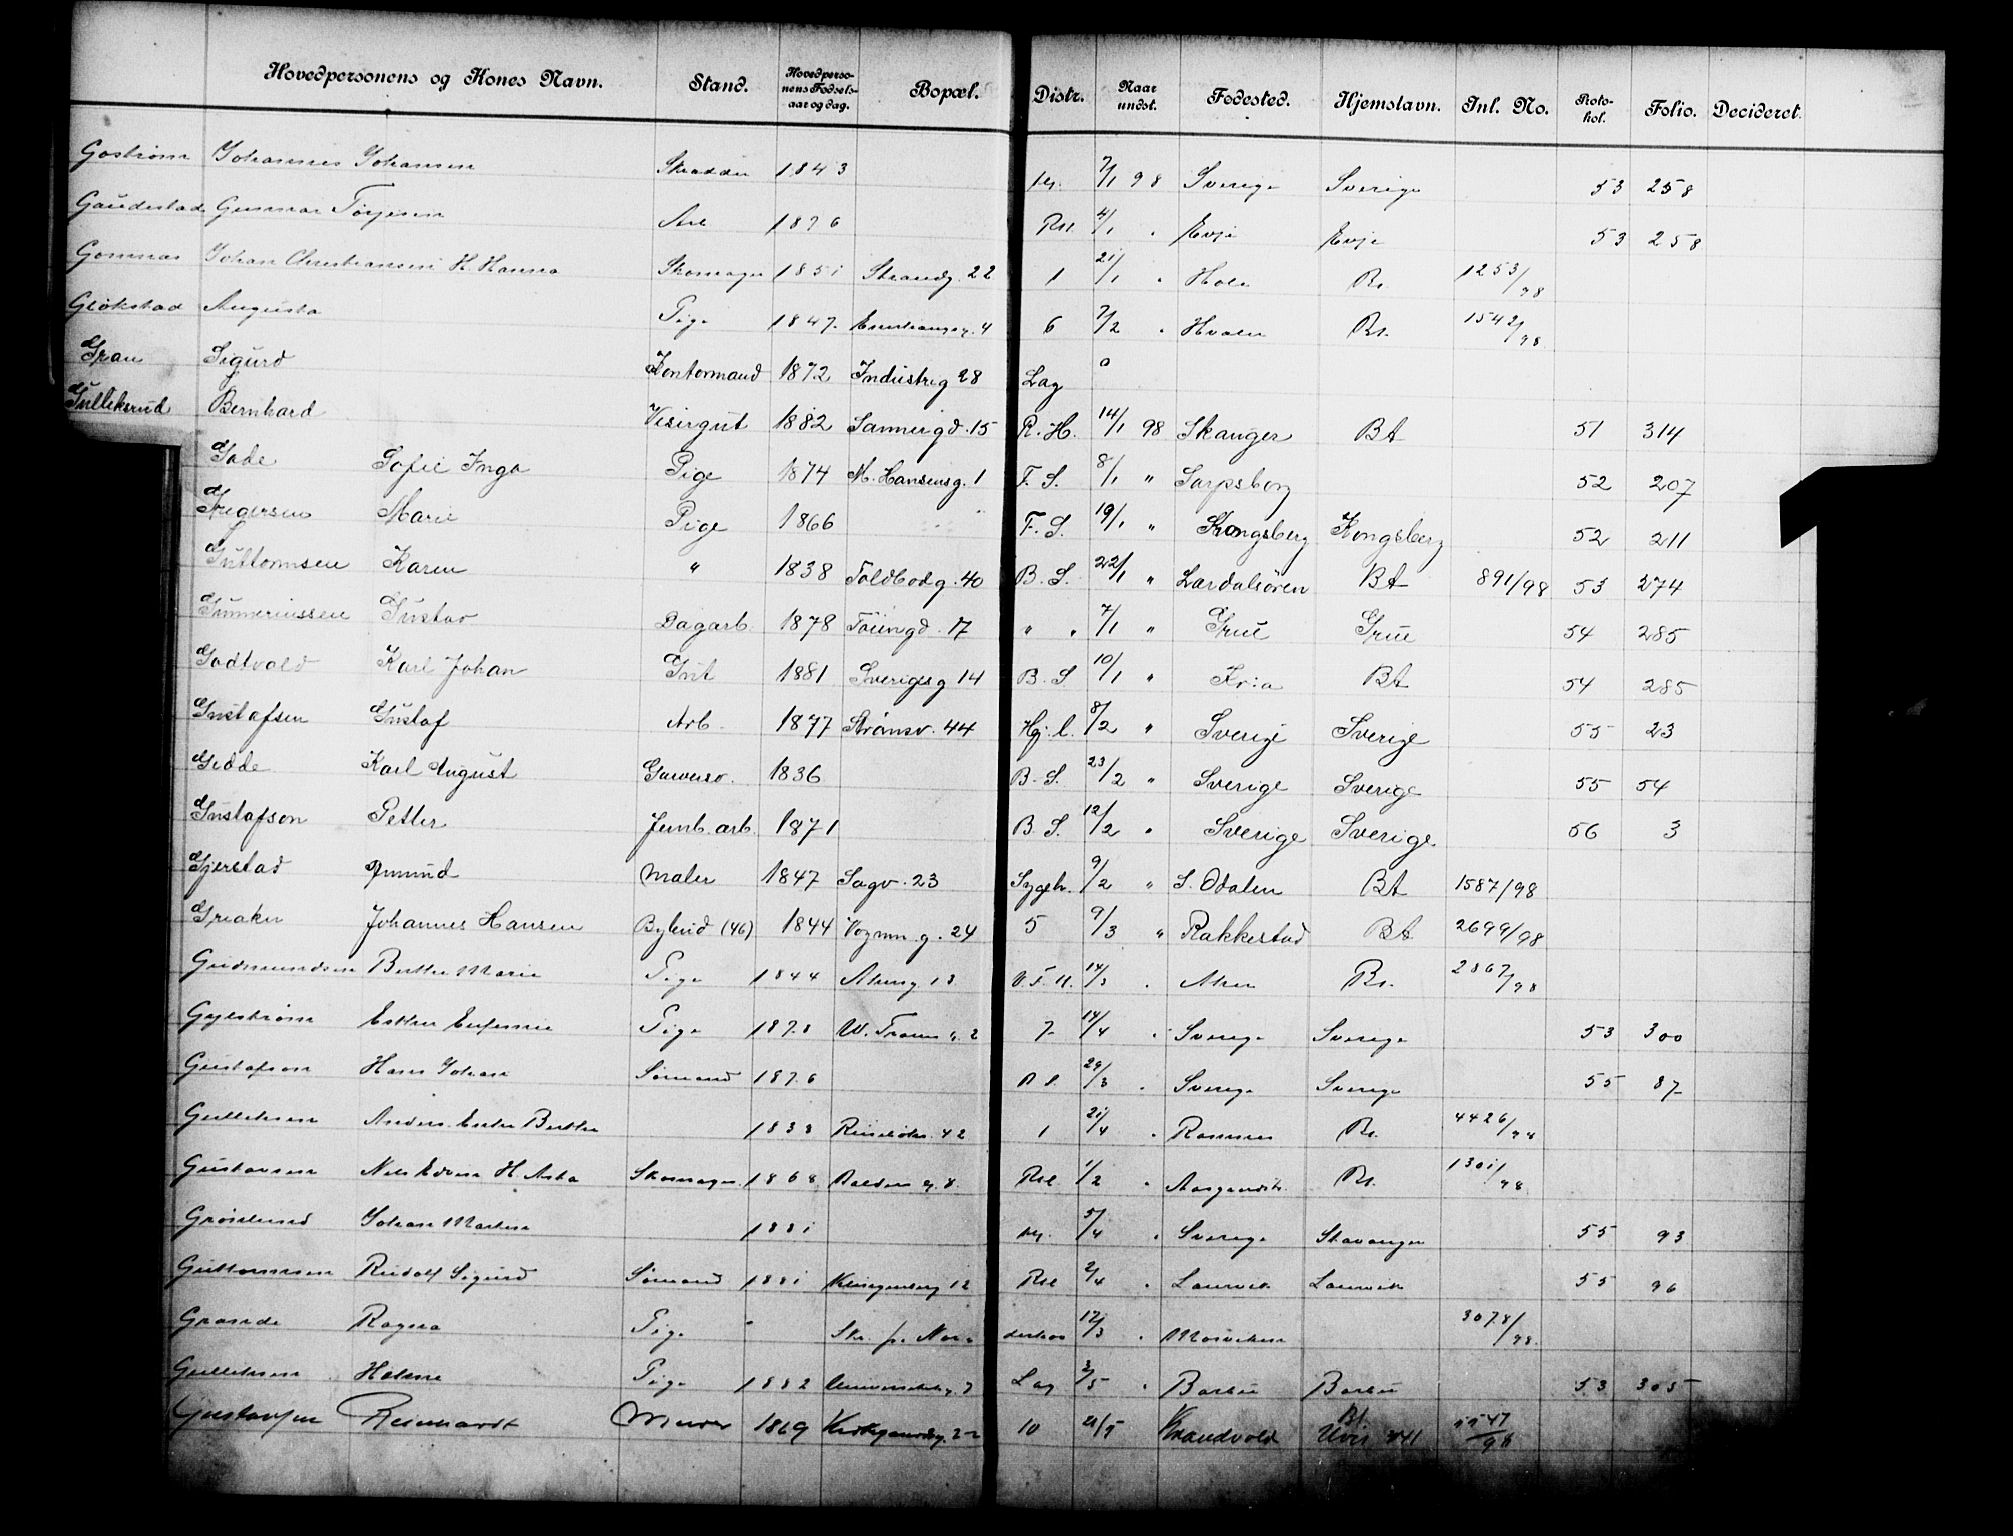 Hovedpersonens og Kones Navn. Stand. Hovedpersonens Fødselsaar og dag. Bopæl. Distr. Naar undst. Fødested. Hjemstavn. Jnl. No. Protokol. Folio. Decideret.
Gostrøm Johannes Johansen Skrædder 1843 7/1 98 Sverige Sverige 53 258
Gaudestad Gunnar Torjesen Arb 1876 4/1 " Evje Evje 53 258
Gomnæs Johan Christiansen H. Hanna Skomager 1851 Strandg. 22 1 21/1 " Hole Bt. 1253/98
Gløkstad Augusta Pige 1847 6 7/2 " Hvaler Bt. 1542/98
Gran Sigurd Kontormand 1872 Industrig 28 Lag
Gulliksrud Bernhard Visirgut 1882 Sannergd. 15 R. H. 14/1 98 Skanger Bt 51 314
Gade Sofie Inga Pige 1874 M. Hansensg. 1 F. S. 8/1 " Sarpsborg 52 207
Gregersen Marie Pige 1866 F. S. 19/1 " Kongsberg Kongsberg 52 211
Guttormsen Karen " 1838 Toldbodg. 40 B. S. 22/1 " Lærdalsøren Bt 891/98 53 274
Gunneriussen Gustav Dagarb. 1878 Tøiengd. 17 " " 7/1 " Grue Grue 54 285
Godtvold Karl Johan Gut 1881 Sverigesg 14 B. S 10/1 " Kr:a Bt 54 285
Gustafsen Gustaf Arb. 1877 Strømsv. 44 Hj. l. 8/2 " Sverige Sverige 55 23
Gedde Karl August Garversv. 1836 B. S. 23/2 " Sverige Sverige 55 54
Gustafson Petter Jernb. arb. 1871 B. S. 12/2 " Sverige Sverige 56 3
Gjerstad Amund Maler 1847 Sagv. 23 Sygeh. 9/2 " S. Odalen Bt 1587/98
Greaker Johannes Hansen Bybud (46) 1844 Vognm. g. 24 5 9/3 " Rakkestad Bt 2699/98
Gudmundsen Berthe Marie Pige 1844 Akersg 13 V. F. U. 14/3 " Aker Bt. 2867/98
Gejestrøm Esther Eufemie Pige 1878 7 14/4 " Sverige Sverige 53 300
Gustafson Hans Johan Sømand 1876 B S. 29/3 " Sverige Sverige 55 87
Gulliksen Anders Enke Berthe 1833 42 1 21/4 " Ramnes Bt. 4426/98
Gustavsen Nils Edvin H. Asta Skomager 1868 8 1/2 " Bt. 1301/98
Grønlund Johan Martin 1881 5/4 " Sverige Stavanger 55 93
Guttormsen Rudolf Sigurd Sømand 1881 Klingenberg 12 2/4 " Laurvik Laurvik 55 96
Grande Ragna Pige " 17/3 " 3078/98
Gulliksen Helene Pige 1882 Universitetsg. 7 Lag 3/5 " Borbu Borbu 53 305
Gustavsen Reinhardt Murer 1869 Kirkegaardsg. 22 10 21/5 Bt